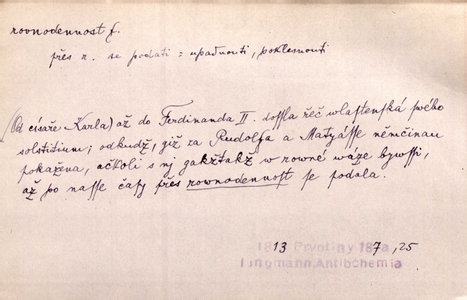 rovnodennost f.
přes r. se podati = upadnouti, poklesnouti
(Od císaře Karla) až do Ferdinanda II. dossla řeč wlastenská swého
solstitium; odkudž, giž za Rudolfa a Matyásse němčinau
pokažena, ačkoli s nj gakžtakž w rowné wáze bywssi,
až po nasse časy přes rownodennost se podala.
1813 Prvotiny 7, 25
Jungmann, Antibohemia